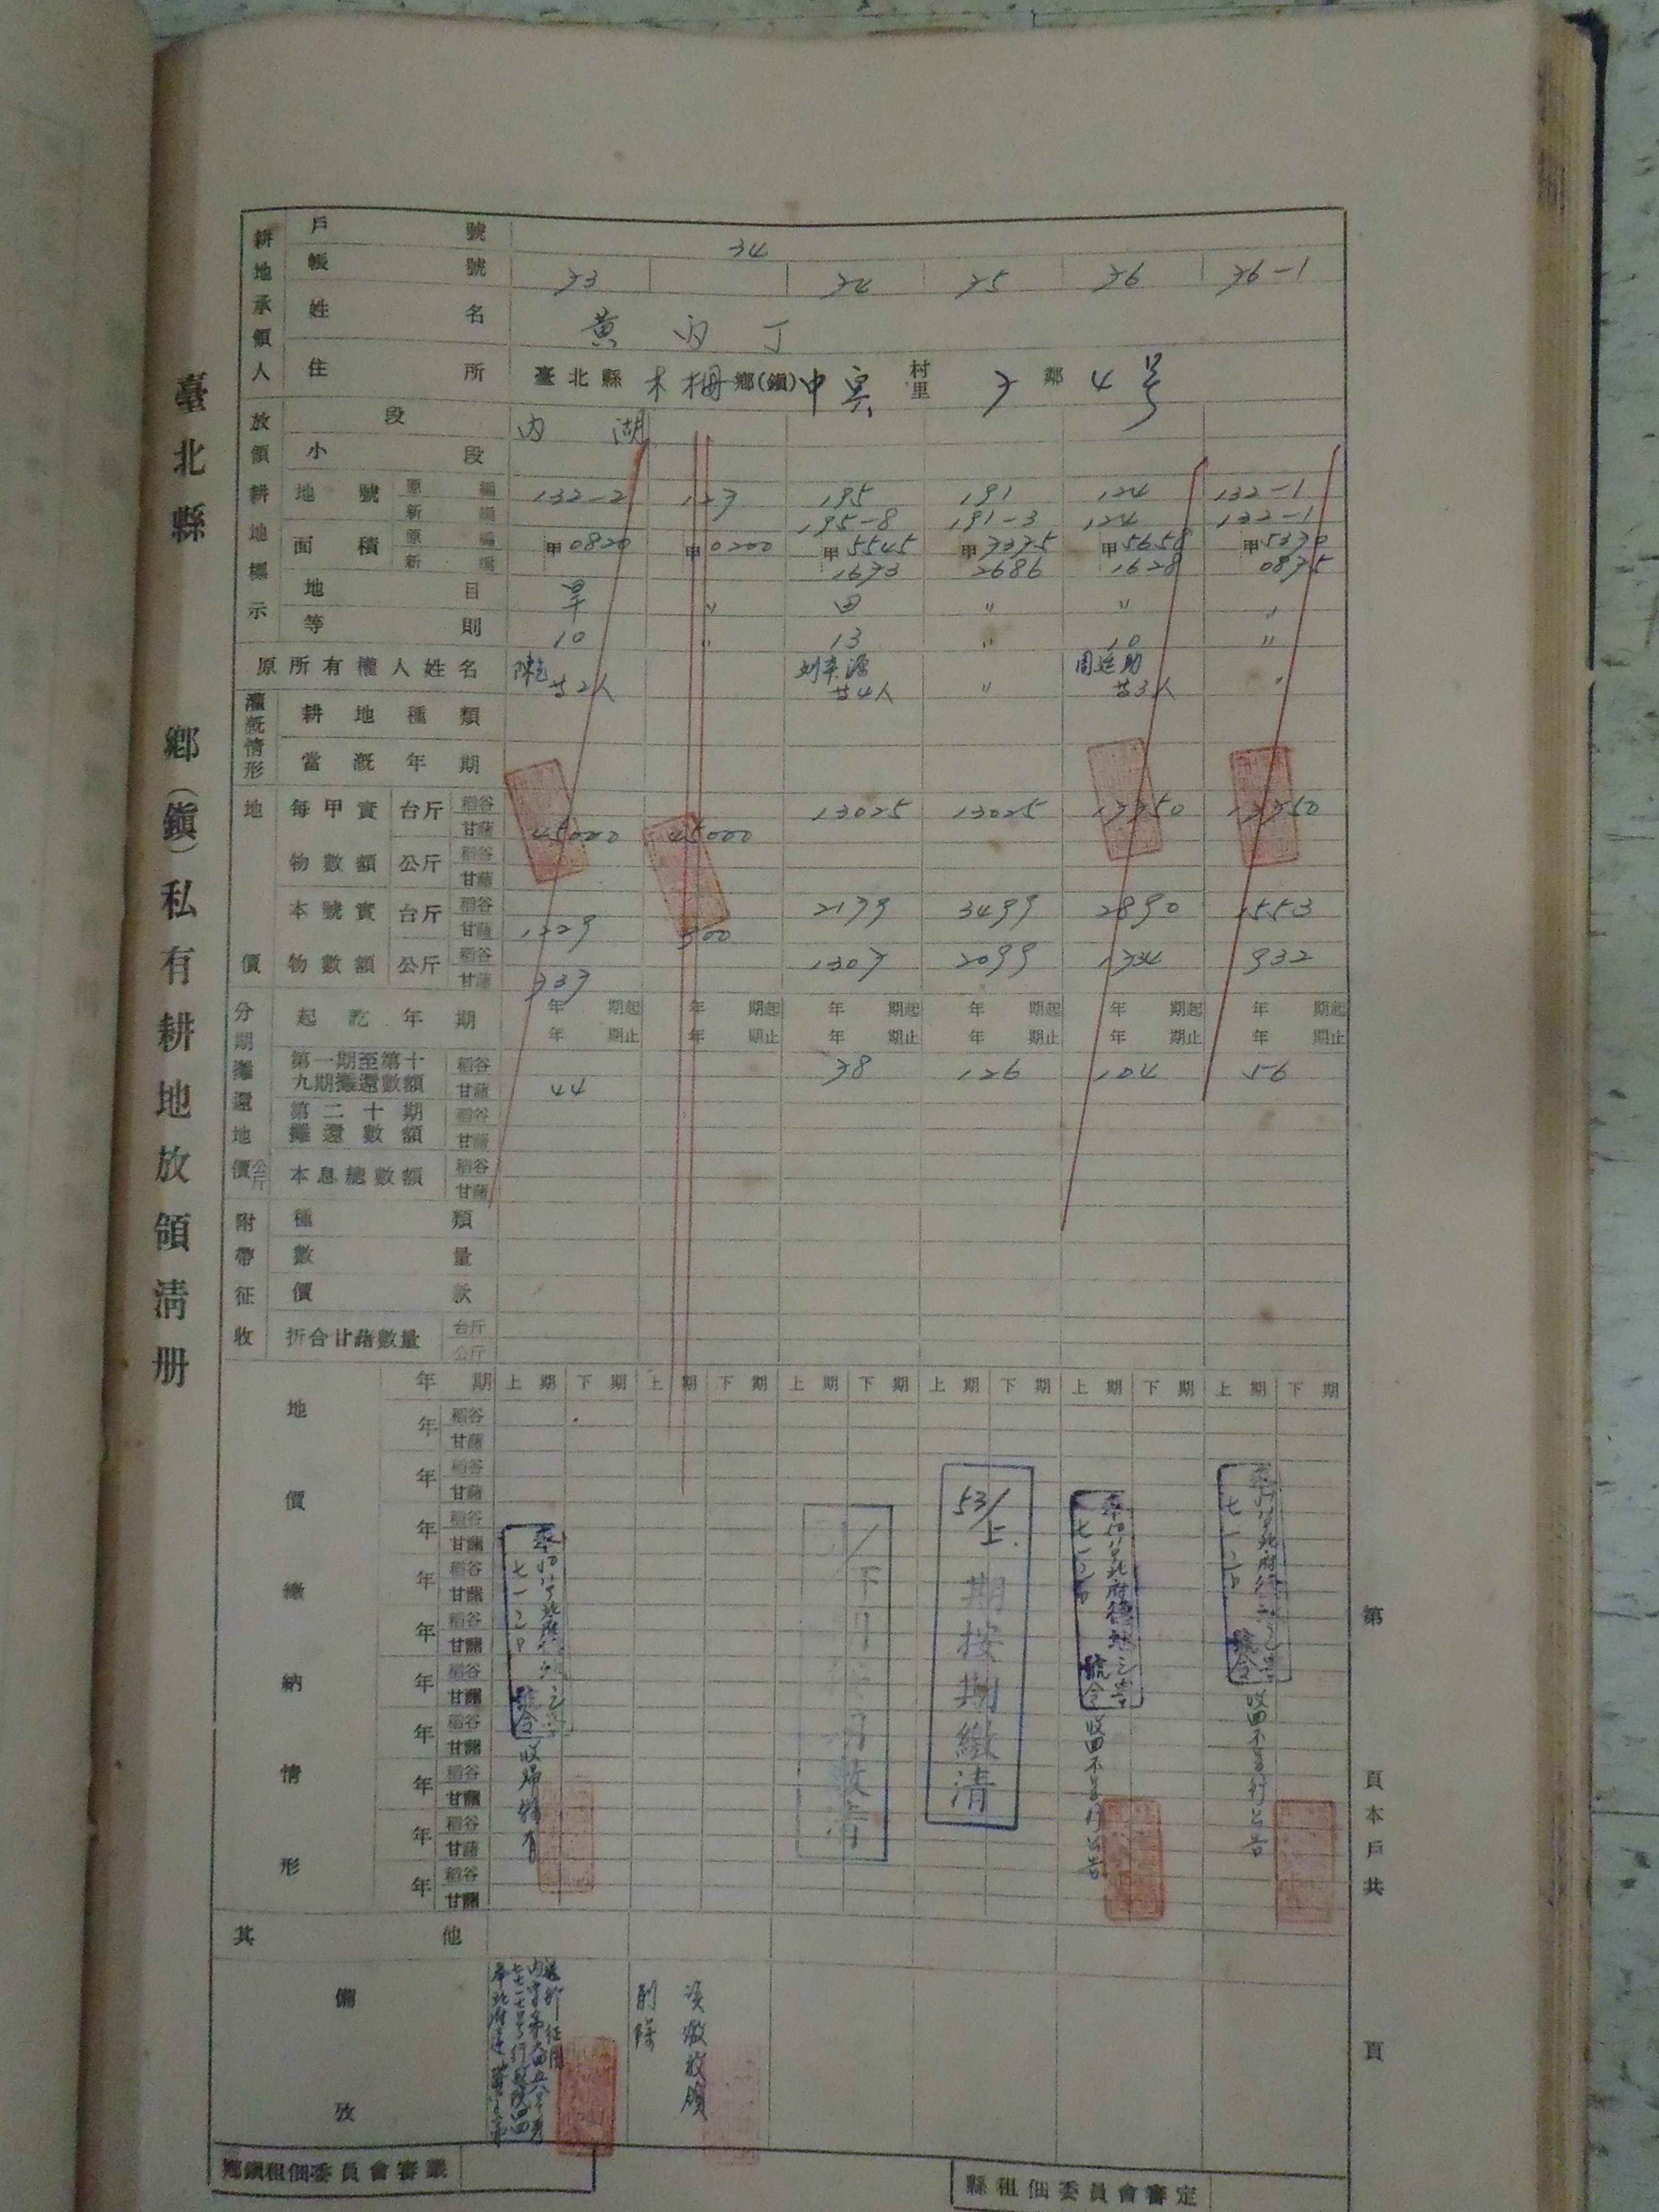 臺北縣 鄉(鎮)私有耕地放領清册
耕地承領人
戶號 34
帳號 73 74 75 76 76-1
姓名 黃丙丁
住所 臺北縣木柵鄉(鎮)中 村里 7 鄰 4 号
放領耕地標示
段 內湖
小段
地號 原編 132-2 127 195 191 124 132-1
新編 195-8 191-3 124 132-1
面積 原編 甲0820 甲0200 甲5545 甲7375 甲5658 甲5370
新編 1673 2686 1628 0875
地目 旱 〃 田 〃 〃 〃
等則 10 〃 13 〃 10 〃
原所有權人姓名 廿2人 廿4人 〃 廿3人 〃
灌漑情形
耕地種類
當漑年期
地價
每甲實物數額 台斤 稻谷 13025 13025 17750 17750
甘藷 45000 45000
公斤 稻谷
甘藷
本號實物數額 台斤 稻谷 2179 3499 2890 1553
甘藷 1229 900
公斤 稻谷 1307 2099 1734 932
甘藷 737
分期攤還地價 公斤
起訖年期 年 期起 年 期起 年 期起 年 期起 年 期起 年 期起
年 期止 年 期止 年 期止 年 期止 年 期止 年 期止
第一期至第十九期攤還數額 稻谷 78 126 104 56
甘藷 44
第二十期攤還數額 稻谷
甘藷
本息總數額 稻谷
甘藷
附帶征收
種類
數量
價款
折合甘藷數量 台斤
公斤
地價繳納情形
年期 上期 下期 上期 下期 上期 下期 上期 下期 上期 下期 上期 下期
年 稻谷
甘藷
年 稻谷
甘藷
年 稻谷
甘藷
年 稻谷
甘藷
年 稻谷
甘藷
年 稻谷
甘藷
年 稻谷
甘藷
年 稻谷
甘藷
年 稻谷
甘藷
年 稻谷
甘藷
53/上.期按期繳清
收回不另行公告
收回不另行公告
其他
備攷
放領
削除
鄉鎮租佃委員會審議
縣租佃委員會審定
第 頁本戶共 頁